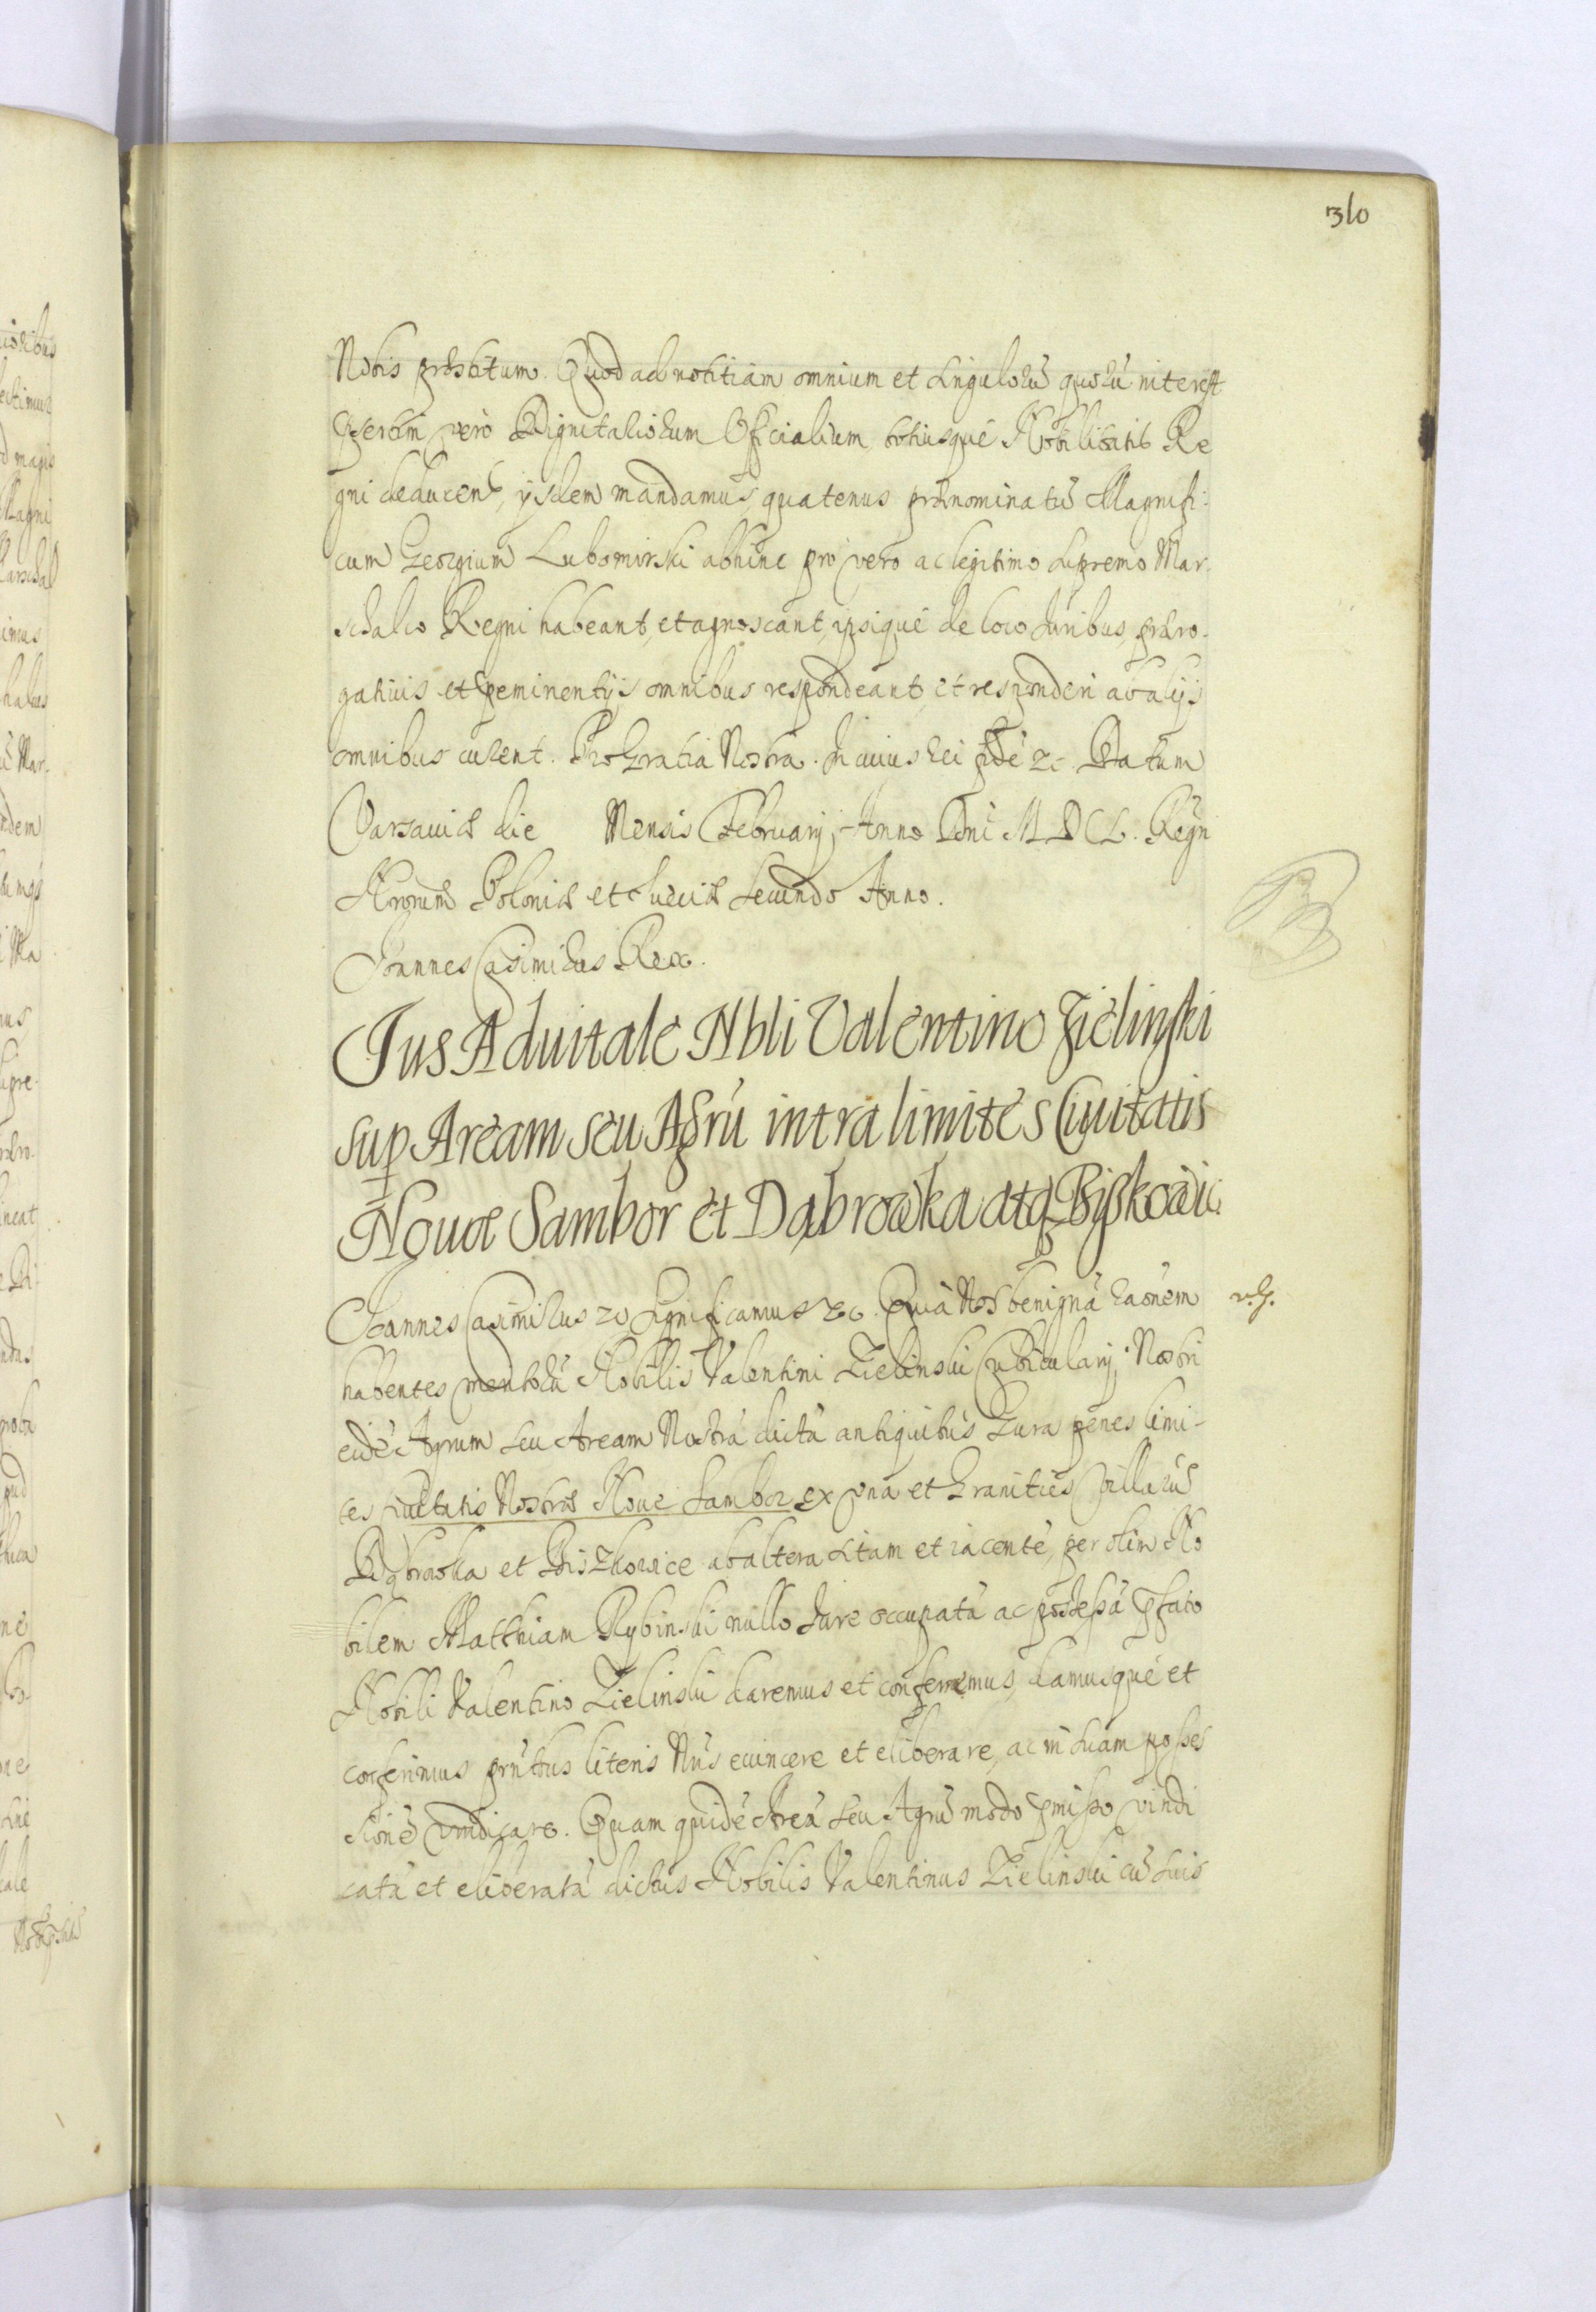 310
Nobis præstitum. Quod ad notitiam omnium et singulorũ quorũ interest
p̃sertim verò Dignitariorum Officialium totiusque Nobilitatis Re
gni deducens, ijsdem mandamus, quatenus prænominatũ Magnifi:
cum Georgium Lubomirski abhinc pro vero ac legitimo supremo Mar-
schalco Regni habeant, et agnoscant, ipsique de loco Juribus, præro-
gatiuis et p̃eminentijs omnibus respondeant, et responderi ab alijs
omnibus curent. Pro Gratia Nostra. In cuius rei fidẽ &c. Datum
Varsauiæ die Mensis Februarij, Anno Dñi MDCL. Regñ
Nrorum Poloniæ et Sueciæ secundo Anno.
Joannes Casimirus Rex.
Jus Aduitale Nbli Valentino Zielinski
sup Aream seu Agrũ intra limites Ciuitatis
Nouæ Sambor et Dąbrowka atq Biskowic
Joannes Casimirus &c Significamus &c. Quia Nos benignã raõnem
habentes meritorũ Nobilis Valentini Zielinski Cubicularij Nostri
eidẽ Agrum seu Aream Nostrã dictã antiquitus Gura penes limi-
tes ciuitatis Nostræ Noue Sambor ex vna et Granities Villarũ
Dąbrowka et Biszkowice ab altera sitam et iacentẽ, per olim No
bilem Matthiam Rybinski nullo Jure occupatã ac possessã p̃fato
Nobili Valentino Zielinski daremus et conferremus, damusque et
conferimus pn̄tibus literis Nr̄is euincere et eliberare, ac in suam posses
sionẽ vindicare. Quam quidẽ Areã seu Agrũ modo p̃misso vindi
catã et eliberatã dictus Nobilis Valentinus Zielinski cũ suis